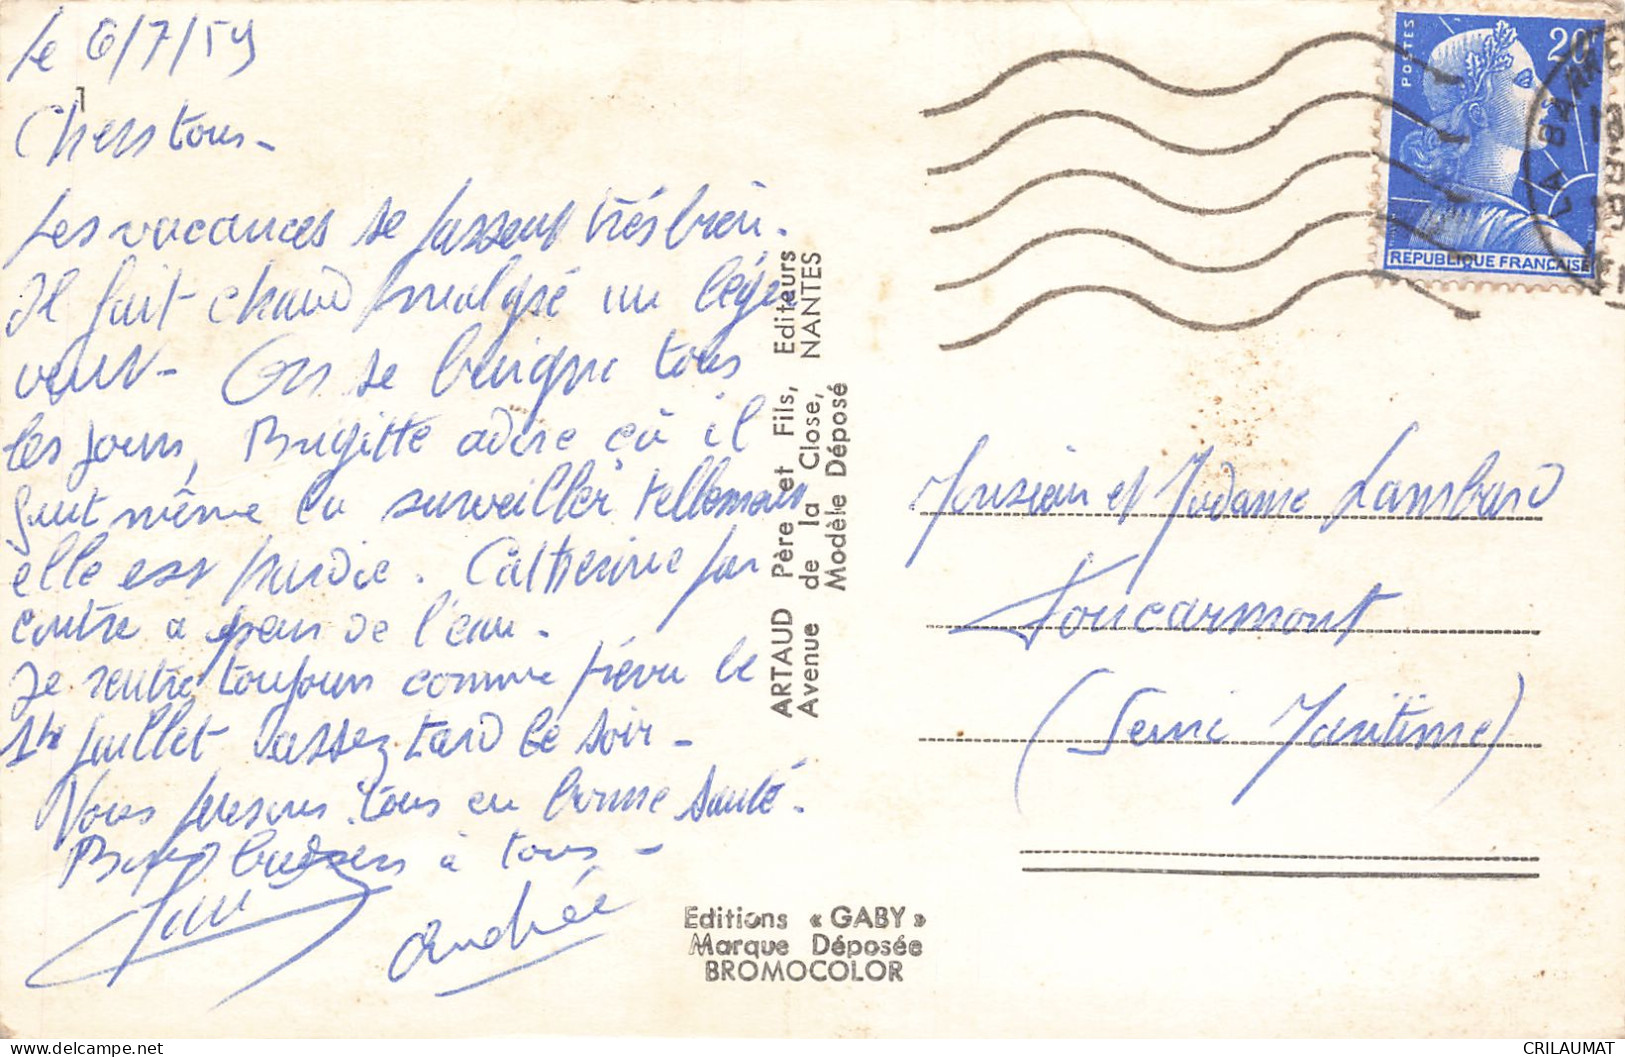 le 6/7/59
Chers tous -
Les vacances se passent très bien.
Il fait chaud malgré un léger
vent - On se baigne tous
les jours, Brigitte adore çà il
faut même la surveiller tellement
elle est hardie. Catherine par
contre a peur de l'eau.
Je rentre toujours comme prévu le
14 juillet assez tard le soir -
Vous pensons tous en bonne santé.
Bons baisers à tous -
Andrée
ARTAUD Père et Fils, Editeurs
Avenue de la Close, NANTES
Modèle Déposé
Editions « GABY »
Marque Déposée
BROMOCOLOR
POSTES
20F
REPUBLIQUE FRANCAISE
LA BARRE
Monsieur et Madame Lambard
Foucarmont
(Seine Maritime)
CRILAUMAT